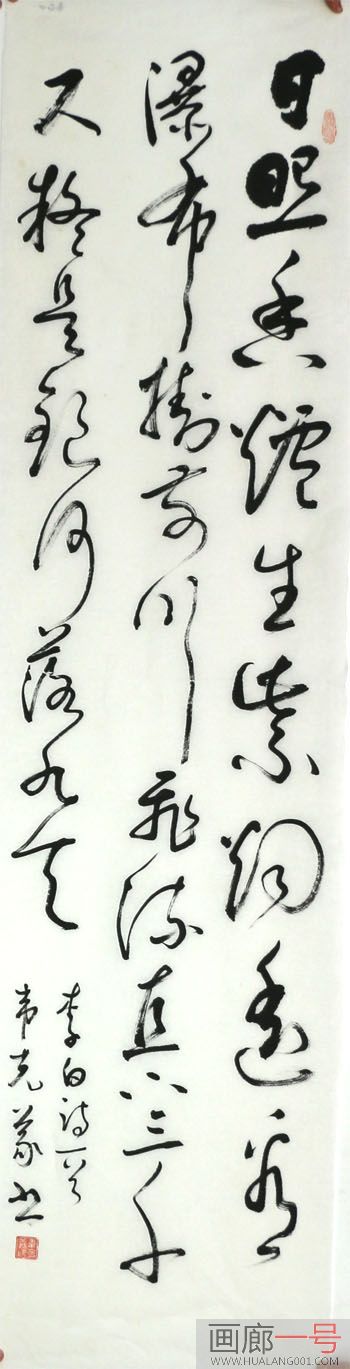 日照香炉生紫烟遥看
瀑布挂前川飞流直下三千
尺疑是银河落九天
李白诗一首
韦克义书
画廊一号
WWW.HUALANG001.COM